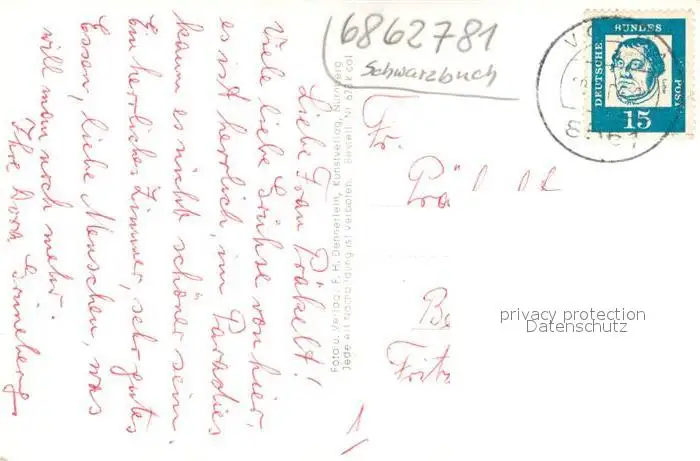 6862781
Schwarzbuch
Liebe Frau Präkelt!
Viele liebe Grüße von hier,
es ist herrlich, im Paradies
kann es nicht schöner sein.
Ein herrliches Zimmer, sehr gutes
Essen, liebe Menschen, was
will man noch mehr.
Ihre Dora Grüneberg
Foto u. Verlag F. H. Dennerlein, Kunstverlag, Nürnberg
Jede Art Nachbildung ist verboten. Bestell. Nr.
DEUTSCHE
BUNDES
POST
15
Fr.
Be
Fritz
privacy protection
Datenschutz